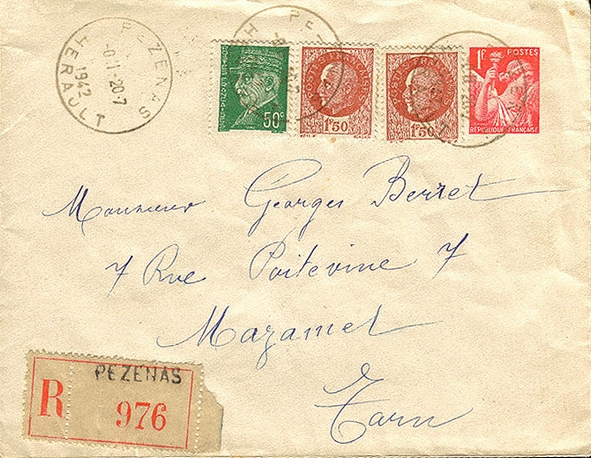 PEZENAS
20-7
1942
HERAULT
50c
POSTES FRANÇAISES
1F50
POSTES FRANÇAISES
1F50
1F
POSTES
RÉPUBLIQUE FRANÇAISE
Monsieur Georges Berret
7 Rue Poitevine 7
Mazamet
Tarn
R
PEZENAS
976